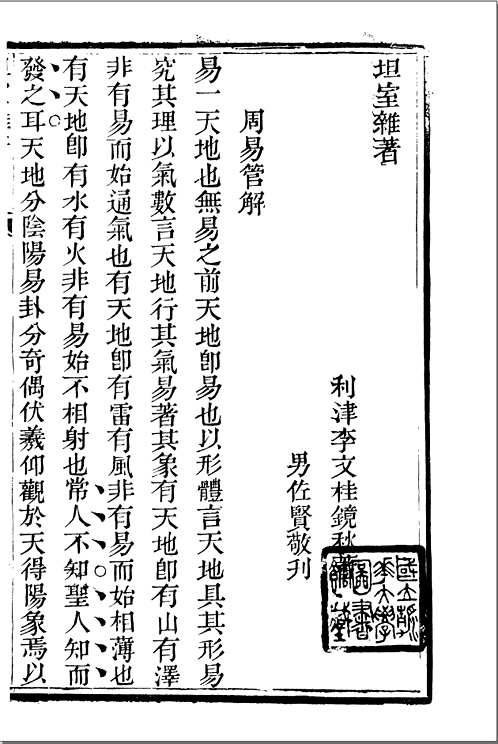 坦室雜著
利津李文桂鏡秋
男佐賢敬刋
周易管解
易一天地也無易之前天地卽易也以形體言天地具其形易
究其理以氣數言天地行其氣易著其象有天地卽有山有澤
非有易而始通氣也有天地卽有雷有風非有易而始相薄也
有天地卽有水有火非有易始不相射也常人不知聖人知而
發之耳天地分陰陽易卦分奇偶伏羲仰觀於天得陽象焉以